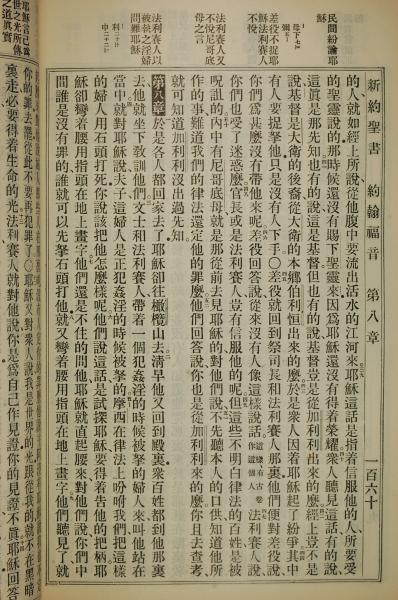 新約聖書 約翰福音 第八章 一百六十
民間紛論耶穌
差役不捉耶穌法利賽人不悅
法利賽人又不悅尼哥底母之言
法利賽人以被執之淫婦問難耶穌
的人就如經上所說從他腹中要流出活水的江河來耶穌這話是指着信服他的人所要受
的聖靈說的那時候還沒有賜下聖靈來因爲耶穌還沒有得着榮耀衆人聽見這話有的說
這眞是那先知也有的說這是基督但也有的說基督豈是從加利利出來的麼經上豈不是
說基督是大衛的後裔從大衛的本鄉伯利恒出來的麼於是衆人因着耶穌起了紛爭其中
有人要捉拏他只是沒有人下手〇差役就回到祭司長和法利賽人那裏他們便對差役說
你們爲甚麼沒有帶他來呢差役回答說從來沒有人像這樣說話這樣有古卷作這個人法利賽人說
你們也受了迷惑麼官長或是法利賽人豈有信服他的呢但這些不明白律法的百姓是被
呪詛的內中有尼哥底母就是那從前去見耶穌的對他們說不先聽本人的口供知道他所
作的事難道我們的律法還定他的罪麼他們回答說你也是從加利利來的麼你且去查考
就可知道加利利沒出過先知
第八章於是各人都回家去了耶穌卻往橄欖山去清早他又回到殿裏衆百姓都到他那裏
去他就坐下敎訓他們文士和法利賽人帶着一個犯姦淫的時候被拏的婦人來叫他站在
當中就對耶穌說夫子這婦人是正犯姦淫的時候被拏的摩西在律法上吩咐我們把這樣
的婦人用石頭打死你說該把他怎麼樣呢他們說這話是試探耶穌要得着告他的把柄耶
穌卻彎着腰用指頭在地上畫字他們還是不住的問他耶穌就直起腰來對他們說你們中
間誰是沒有罪的誰就可以先拏石頭打他就又彎着腰用指頭在地上畫字他們聽見了就
耶穌言己爲世之光所傳之道眞實
你的罪去罷從此不要再犯罪了〇耶穌又對衆人說我是世界的光跟從我的就不在黑暗
裏走必要得着生命的光法利賽人就對他說你是爲自己作見證你的見證不眞耶穌回答